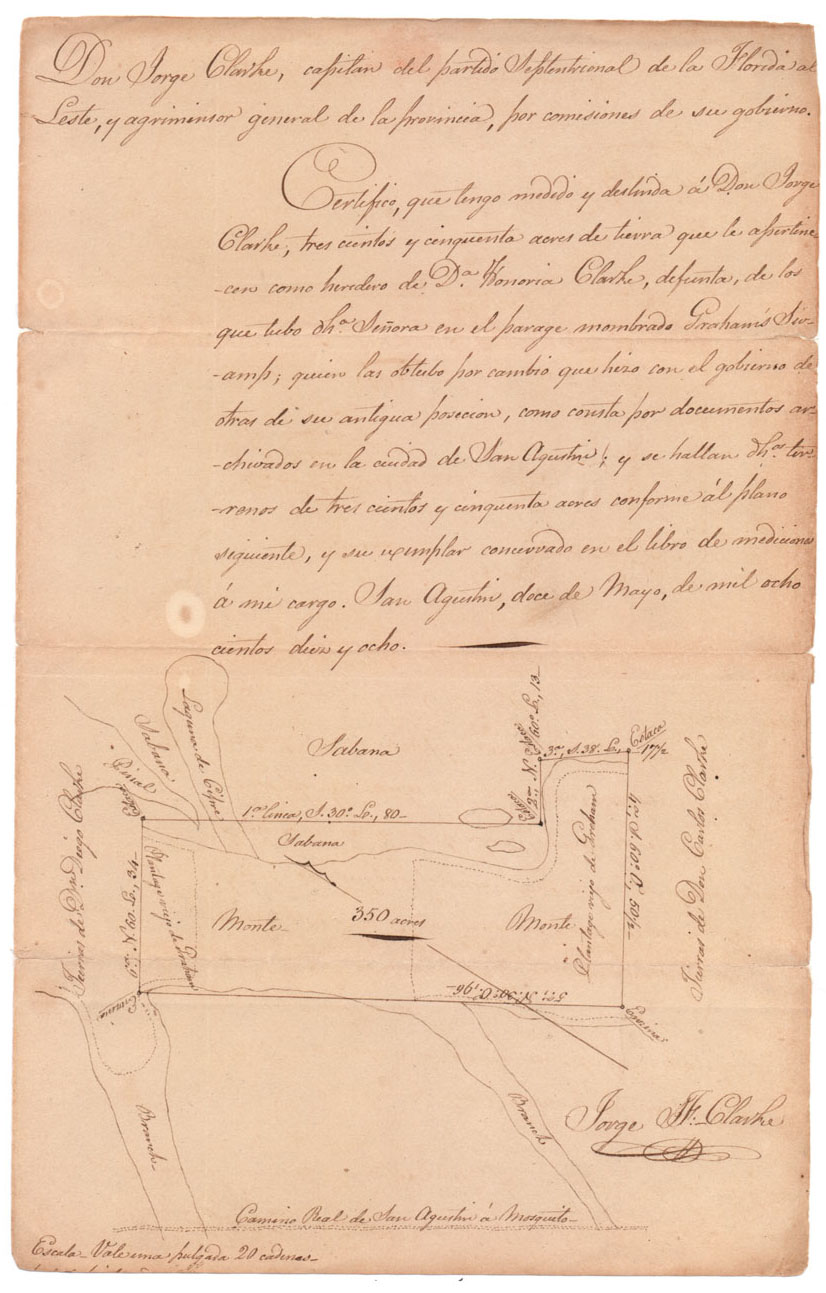 Don Jorge Clarke, capitan del partido Septentrional de la Florida al
Leste, y agrimensor general de la provincia, por comisiones de su gobierno.
Certifico, que tengo medido y deslinda á Dn. Jorge
Clarke, tres cientos y cinquenta acres de tierra que le apertine-
-cen como heredero de Da. Honoria Clarke, defunta, de los
que tubo dha. Señora en el parage mombrado Graham's Sw-
-amp; quien las obtubo por cambio que hizo con el gobierno de
otras de su antigua posecion, como consta por documentos ar-
-chivados en la ciudad de San Agustin; y se hallan dhos. ter-
-renos de tres cientos y cinquenta acres conforme ál plano
siguiente, y su exemplar concervado en el libro de mediciones
á mi cargo. San Agustin, doce de Mayo, de mil ocho
cientos diez y ocho.
Laguna de Cipre
Sabana
Pinal
Sabana
2a. N. 60o. Lo., 13-
3a., S. 38o. Lo.,
Estaca
17 1/2
1a. linea, S. 30o. Lo., 80-
Sabana
Tierras de Dn. Diego Clarke
6a. N. 60. Lo., 34-
Plantage viejo de Graham
Monte-
350 acres
Monte
Plantage viejo de Graham
4a. S. 60o. O., 50 1/2
Tierras de Don Carlos Clarke
5a. N. 30o. O., 96-
Encina
Encina
Branch-
Branch
Jorge J. F. Clarke
Camino Real de San Agustin á Mosquito-
Escala- Vale una pulgada 20 cadenas-